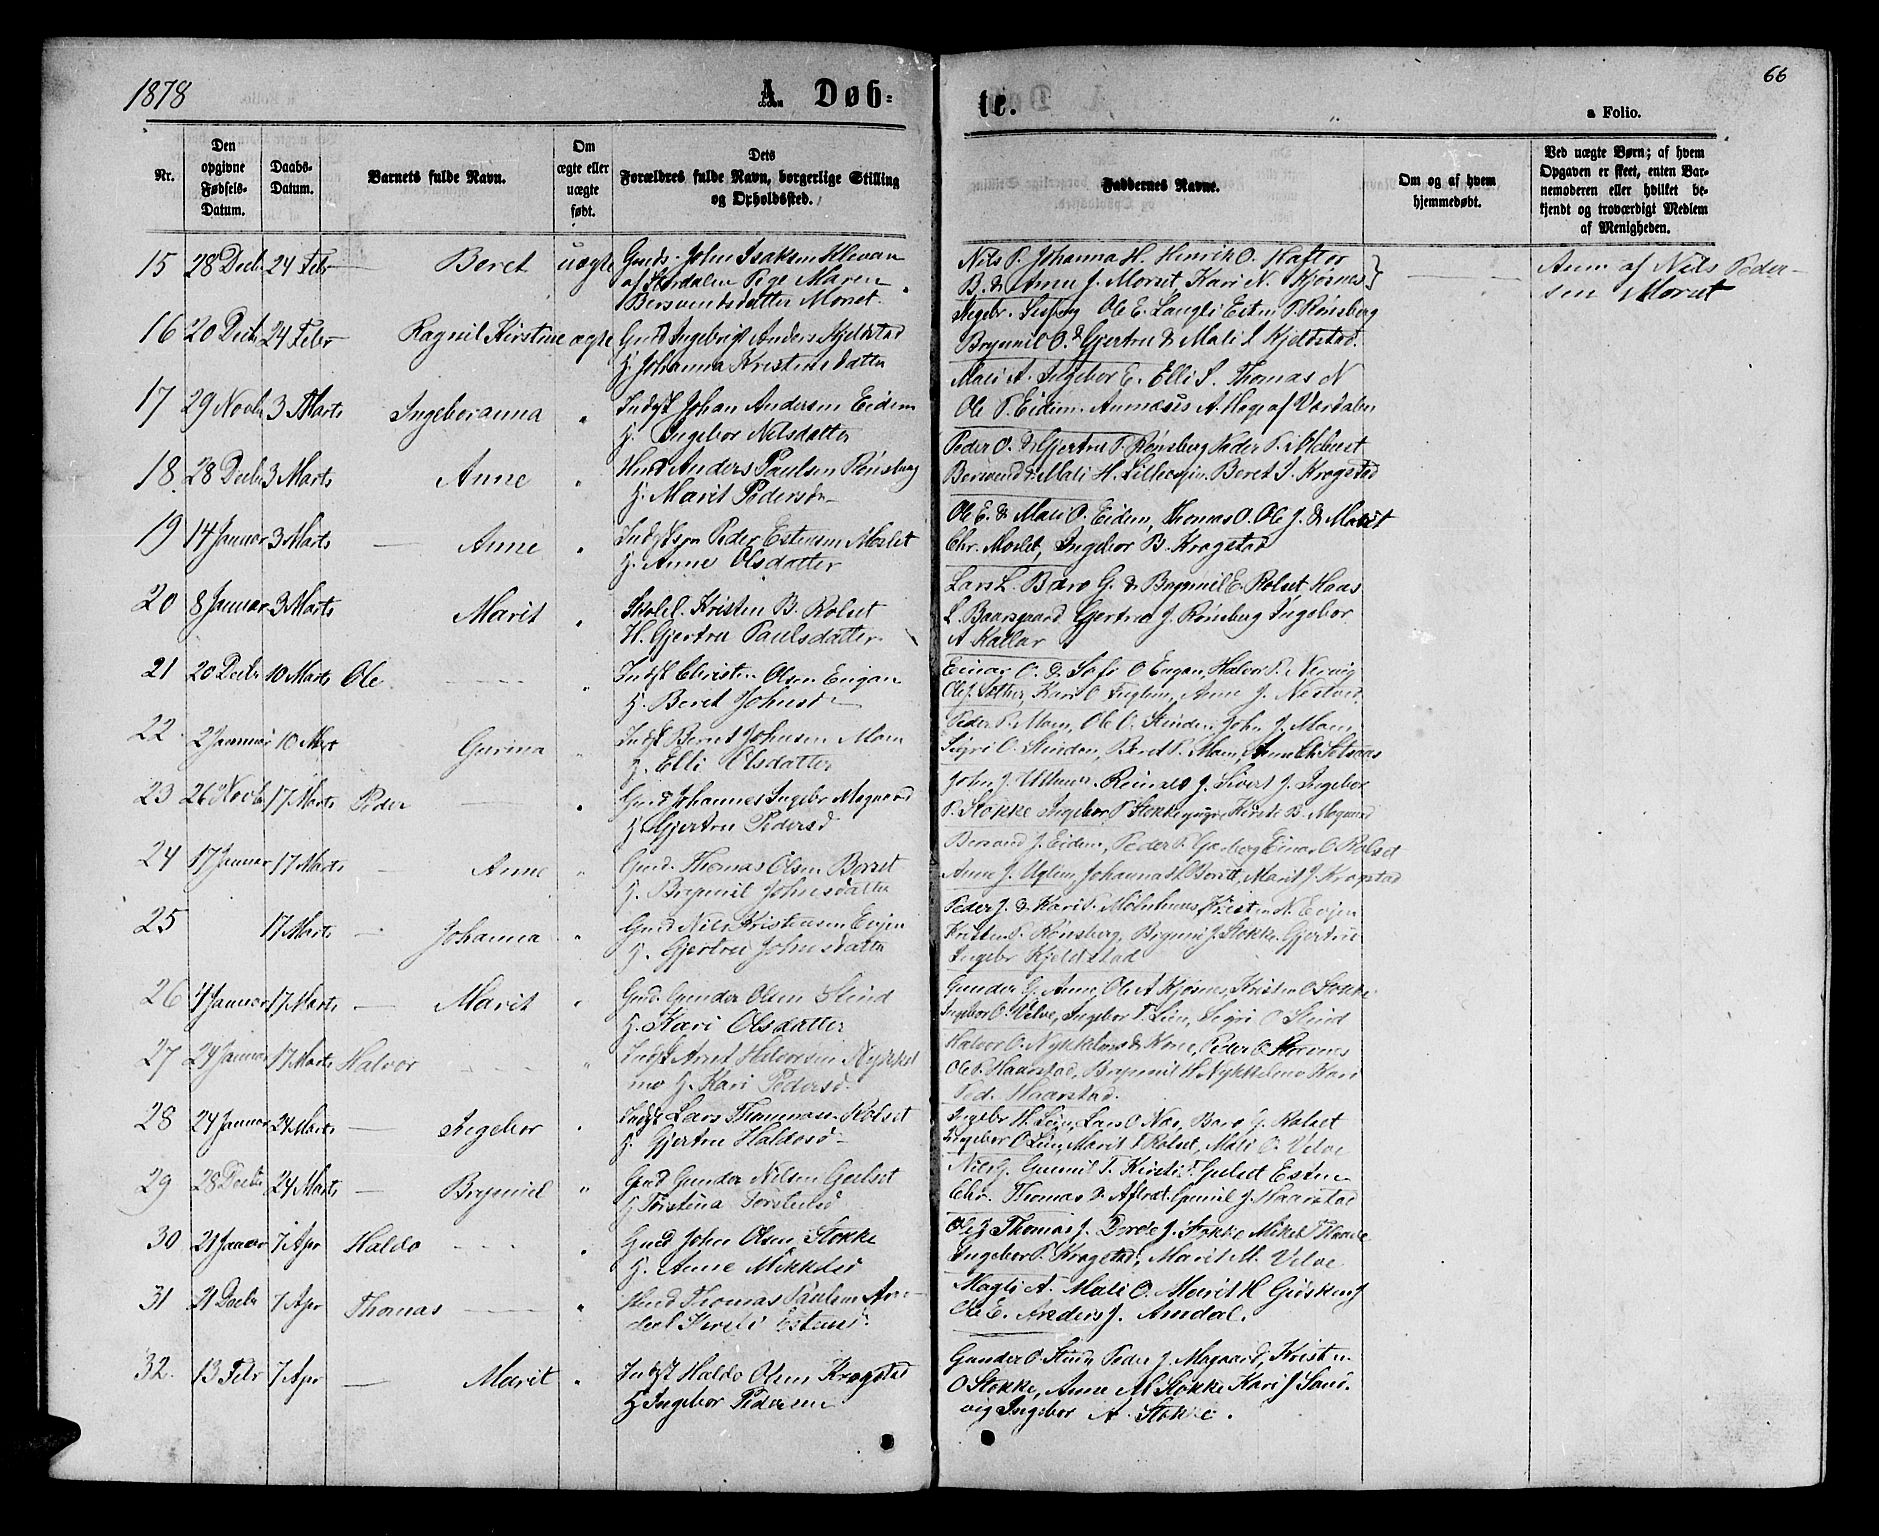 1878
A. Døb=
te.
66
a Folio.
Nr.
Den opgivne Fødsels-Datum.
Daabs-Datum.
Barnets fulde Navn.
Om ægte eller uægte født.
Dets Forældres fulde Navn, borgerlige Stilling og Opholdssted.
Faddernes Navne.
Om og af hvem hjemmedøbt.
Ved uægte Børn; af hvem Opgaven er skeet, enten Barnemoderen eller hvilket bekjendt og troværdigt Medlem af Menigheden.
15 28 Decb 24 Febr — Beret uægte Gmds. John Isaksen Klevan
af Stordalen Pige Maren
Bersvendsdatter Morset.
Nils P. Johanna H. Henrik O. Haftor
B. & Anne J. Morset, Kari N. Kjøsnes
Anm af Nils Peder-
sen Morset
16 20 Decb 24 Febr Ragnil Kirstine ægte Gmd Ingebrigt Anders Kjeldstad
H. Johanna Kristensdatter
Ingebr. Ole E. Langli Esten P. Rønsberg
Brynnil O. & Gjertru & Mali I Kjeldstad.
17 29 Novb 3 Marts Ingeboranna " Indst Johan Andersen Eidem
H. Ingebor Nilsdatter
Mali A. Ingebor E. Elli S. Thomas N
Ole P. Eidem. A. Hage af Værdalen
18. 28 Decb 3 Marts Anne " Husd Anders Paulsen Rønsberg
H. Marit Pedersd
Peder O. & Gjertru P. Rønsberg Peder P.
Bersvend & Mali H. Beret I. Kragstad
19 14 Januar 3 Marts — Anne " Peder Estensen Moslet
H. Anne Olsdatter
Ole E. & Mali O. Eidem, Thomas O. Ole J. & Marit
Chr. Moslet, Ingebor B. Kragstad
20 8 Januar 3 Marts Marit " Skolel. Kristen B. Rolset
H. Gjertru Paulsdatter
Lars L. Baro G. & Brynnil E. Rolset, Haas
L. Baarsgaard Gjertru J. Rønsberg Ingebor
A Kallar
21 20 Decb 10 Marts Ole " Indst Christen Olsen Engan
H. Beret Johnsd
Einar O. & Sofi O Engan, Halvor P. Nervig
Ole J. Kari O Uglem, Anne J.
22 2 Januar 10 Mart Gurina " Indst Bernt Johnsen Mam
H. Elli Olsdatter
Peder P. Mam, Ole O. Stinden, John J. Mam
Sigri O. Stinden, Beret P. Mam, Anne
23 26 Novb 17 Marts Peder " Gmd Johannes Ingebr Mogaard
H. Gjertru Pedersd
John J. Sivert J. Ingebor
P. Stokke Ingebor P Stokke Kirsti B. Mogaard
24 17 Januar 17 Marts — Anne " Gmd. Thomas Olsen Borset
H. Brynnil Johnsdatter
Bersvend J. Eidem, Peder P. Garberg Einar O Rolset
Anne J. Uglem, Johanna Marit J. Kragstad
25 17 Marts — Johanna " Gmd Nils Kristensen Evjen
H. Gjertru Johnsdatter
Peder J. & Kari P. Mølnhuus, Kristen N. Evjen
Kristen P. Rønsberg, Brynnil J. Stokke. Gjertru
Ingebr Kjeldstad
26 4 Januar 17 Marts — Marit " Gmd. Gunder Olsen Stind
H. Kari Olsdatter
Gunder G. Anne, Ole A Kjøsnes, Kristen O Stokke
Ingebor O. Velve, Ingebor T. Lien, Sigri O Stind
27 24 Januar 17 Marts Halvor " Indst Arnt Halvorsen Nykkel
mo H. Kari Pedersd.
Halvor O. Nykkelmo & Kone, Peder O.
Ole P. Haarstad, Brynnil H Nykkelmo Kari
Ped. Haarstad.
28 24 Januar 24 Marts — Ingebor " Indst Lars Thomasen Rolset
H. Gjertru Haldosd
Ingebr H. Lien, Lars O Næs, Baro J. Rolset
Ingebor O Lien, Marit I Rolset, Mali O. Velve
29 28 Decbr 24 Marts — Brynnil " Gmd Gunder Nilsen Gulset
H Torstina
Nils G. Gunnil T. Kirsti T. Gulset Esten
Chr. Thomas & Gunil J. Haarstad
30 21 Januar 7 Apr Haldo " Gmd John Olsen Stokke
H. Anne Mikkelsd
Ole J Thomas J. Dorde J. Stokke Mikel T
Ingebor P. Kragstad, Marit M. Velve
31 21 Decbr 7 Apr Thomas " Husd Thomas Paulsen Am-
dal Kirsti Estensd.
Magli A. Mali O. Marit H
Ole E. Anders J. Amdal.
32. 13 Febr 7 Apr — Marit " Indst Haldo Olsen Kragstad
H Ingebor Pedersen
Gunder O. Stind Peder J. Mogaard, Kristen
O Stokke, Anne M Stokke Kari J Sand-
vig Ingebor A. Stokke.